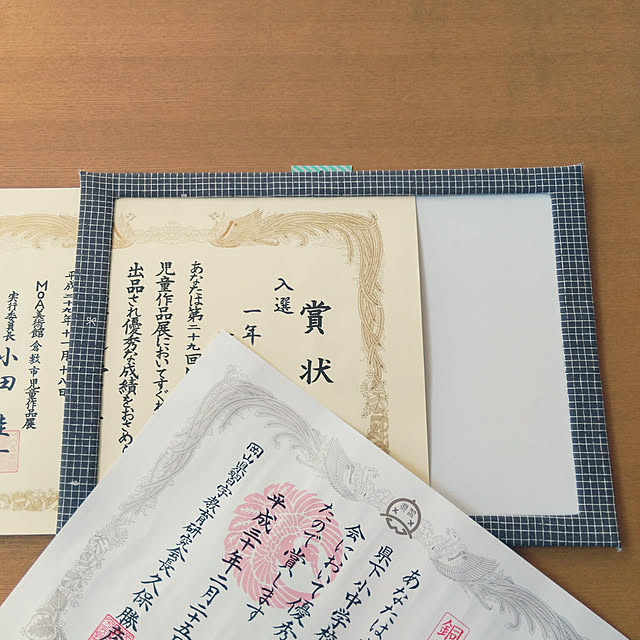 賞状
入選
一年
あなたは第二十九回
児童作品展においてすぐれ
出品され優秀な成績をおさめ
平成二十九年十一月十八日
MOA美術館倉敷市児童作品展
実行委員長 小田 圭一
銅
あなたは
県下小中学校
会において優秀
たので賞します
平成三十年二月二十五日
岡山県習字教育研究会長 久保勝